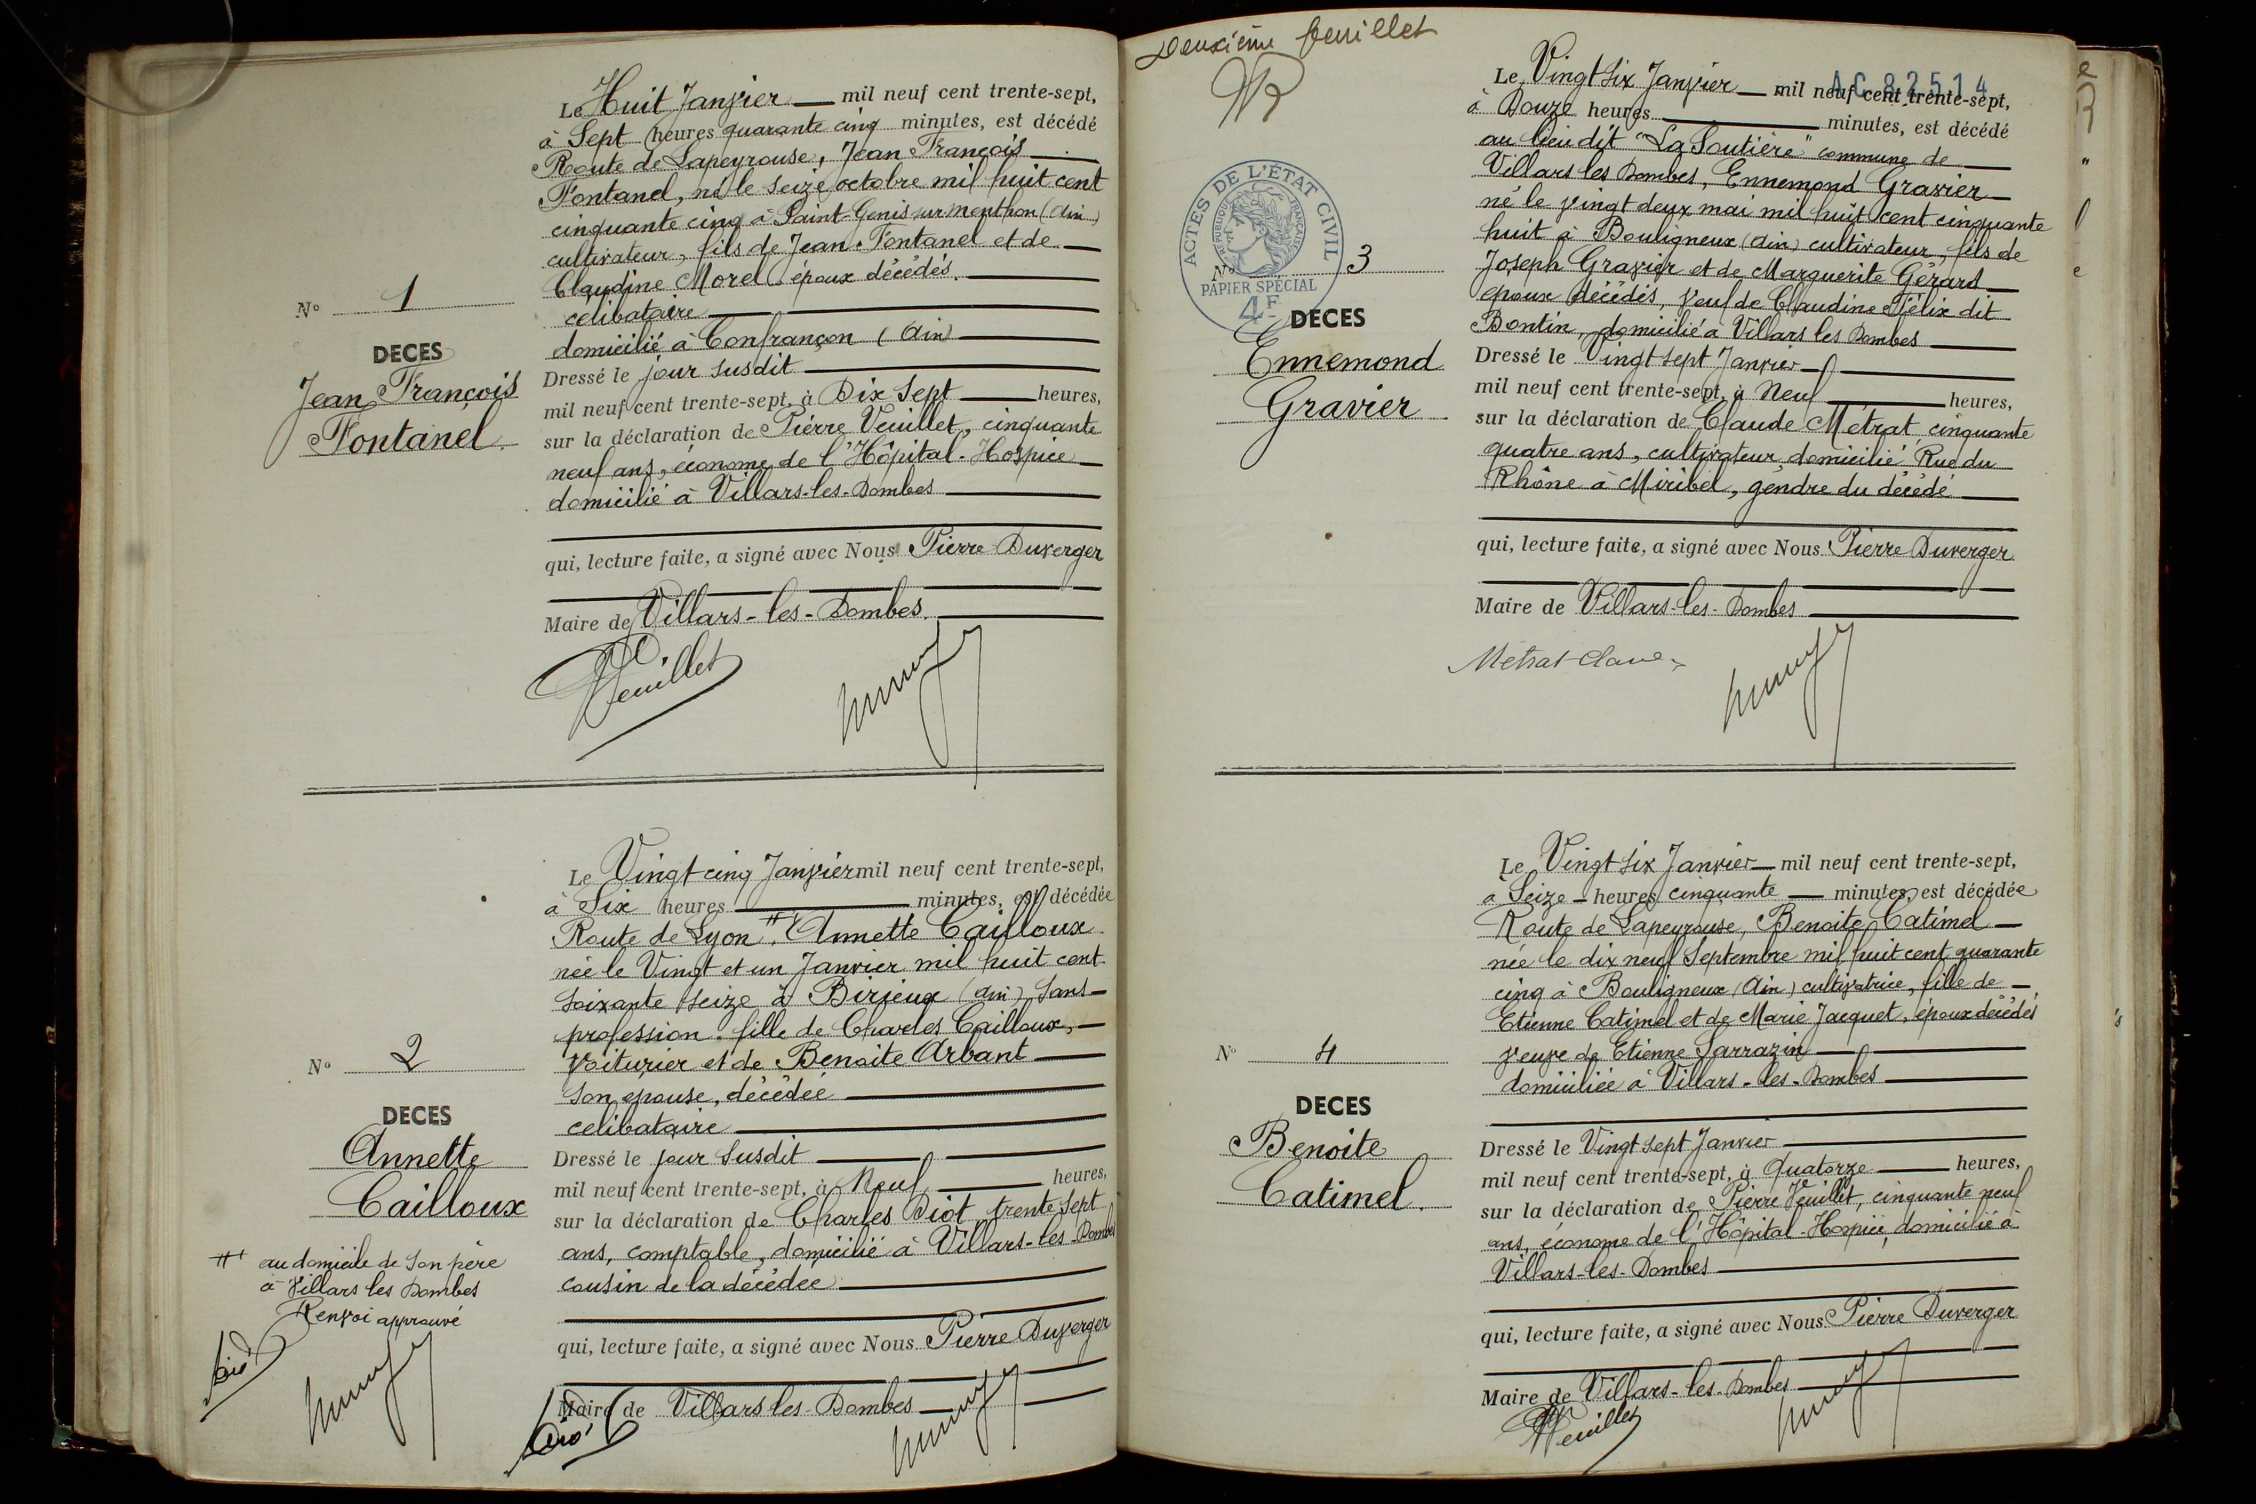 Le Huit Janvier mil neuf cent trente-sept,
à Sept heures quarante cinq minutes, est décédé
Route de Lapeyrouse, Jean François
Fontanel, né le seize octobre mil huit cent
cinquante cinq à Saint-Genis sur Menthon (Ain)
cultivateur, fils de Jean Fontanel et de
Claudine Morel époux décédés.
célibataire
domicilié à Confrançon (Ain)
Dressé le jour susdit
mil neuf cent trente-sept, à Dix Sept heures,
sur la déclaration de Pierre Veuillet, cinquante
neuf ans, économe de l'Hôpital-Hospice
domicilié à Villars-les-Dombes
qui, lecture faite, a signé avec Nous Pierre Duverger
Maire de Villars-les-Dombes.
Veuillet
No 1
DECES
Jean François
Fontanel.
Le Vingt cinq Janvier mil neuf cent trente-sept,
à Six heures minutes, est décédée
Route de Lyon, Annette Cailloux
née le Vingt et un Janvier mil huit cent
soixante seize à Birieux (Ain) sans
profession, fille de Charles Cailloux,
voiturier et de Benoite Arbant
son épouse, décédée
célibataire
Dressé le jour susdit
mil neuf cent trente-sept, à Neuf heures,
sur la déclaration de Charles Diot, trente sept
ans, comptable, domicilié à Villars-les-Dombes
cousin de la décédée
qui, lecture faite, a signé avec Nous Pierre Duverger
Maire de Villars les Dombes
No 2
DECES
Annette
Cailloux
au domicile de son père
à Villars les Dombes
Renvoi approuvé
Deuxième feuillet
AC 82514
ACTES DE L'ÉTAT CIVIL
RÉPUBLIQUE FRANÇAISE
PAPIER SPÉCIAL
4F
No 3
DECES
Ennemond
Gravier
Le Vingt six Janvier mil neuf cent trente-sept,
à Douze heures minutes, est décédé
au lieu dit "La Soutière" commune de
Villars les Dombes, Ennemond Gravier
né le vingt deux mai mil huit cent cinquante
huit à Bouligneux (Ain) cultivateur, fils de
Joseph Gravier et de Marguerite Gérard
époux décédés, veuf de Claudine Félix dit
Bontin, domicilié à Villars les Dombes
Dressé le Vingt sept Janvier
mil neuf cent trente-sept, à Neuf heures,
sur la déclaration de Claude Métrat, cinquante
quatre ans, cultivateur, domicilié Rue du
Rhône à Miribel, gendre du décédé
qui, lecture faite, a signé avec Nous Pierre Duverger
Maire de Villars-les-Dombes
Métrat Claude
Le Vingt six Janvier mil neuf cent trente-sept,
à Seize heures cinquante minutes, est décédée
Route de Lapeyrouse, Benoite Catimel
née le dix neuf Septembre mil huit cent quarante
cinq à Bouligneux (Ain) cultivatrice, fille de
Etienne Catimel et de Marie Jacquet, époux décédés
veuve de Etienne Sarrazin
domiciliée à Villars-les-Dombes
Dressé le Vingt sept Janvier
mil neuf cent trente-sept, à Quatorze heures,
sur la déclaration de Pierre Veuillet, cinquante neuf
ans, économe de l'Hôpital-Hospice, domicilié à
Villars-les-Dombes
qui, lecture faite, a signé avec Nous Pierre Duverger
Maire de Villars-les-Dombes
Veuillet
No 4
DECES
Benoite
Catimel.